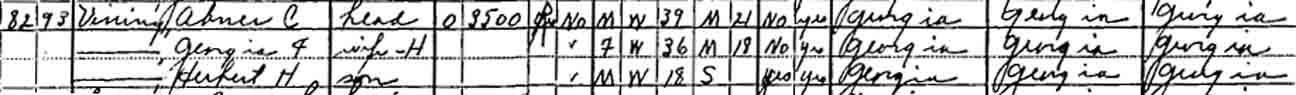 82 93 Vining, Abner C head O 3500 R No M W 39 M 21 No yes Georgia Georgia Georgia
——, Georgia F wife-H " F W 36 M 18 No yes Georgia Georgia Georgia
——, Herbert H son " M W 18 S yes yes Georgia Georgia Georgia